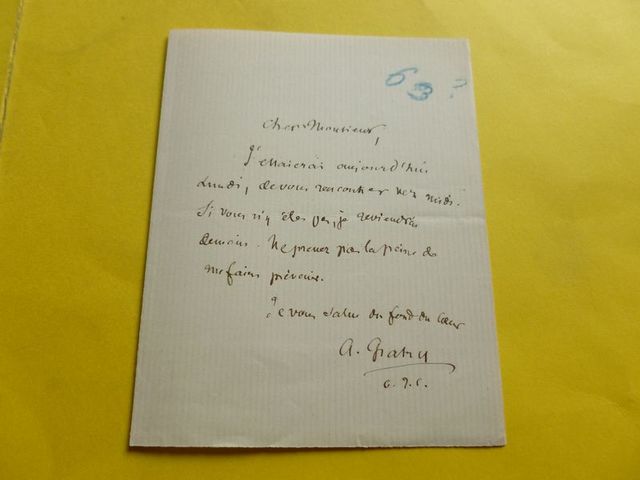 63 ?
Cher Monsieur,
J'essaierai aujourd'hui
Lundi, de vous rencontrer vers midi.
Si vous n'y êtes pas, je reviendrai
demain. Ne prenez pas la peine de
me faire prévenir.
Je vous salue du fond du cœur
A. Gratry